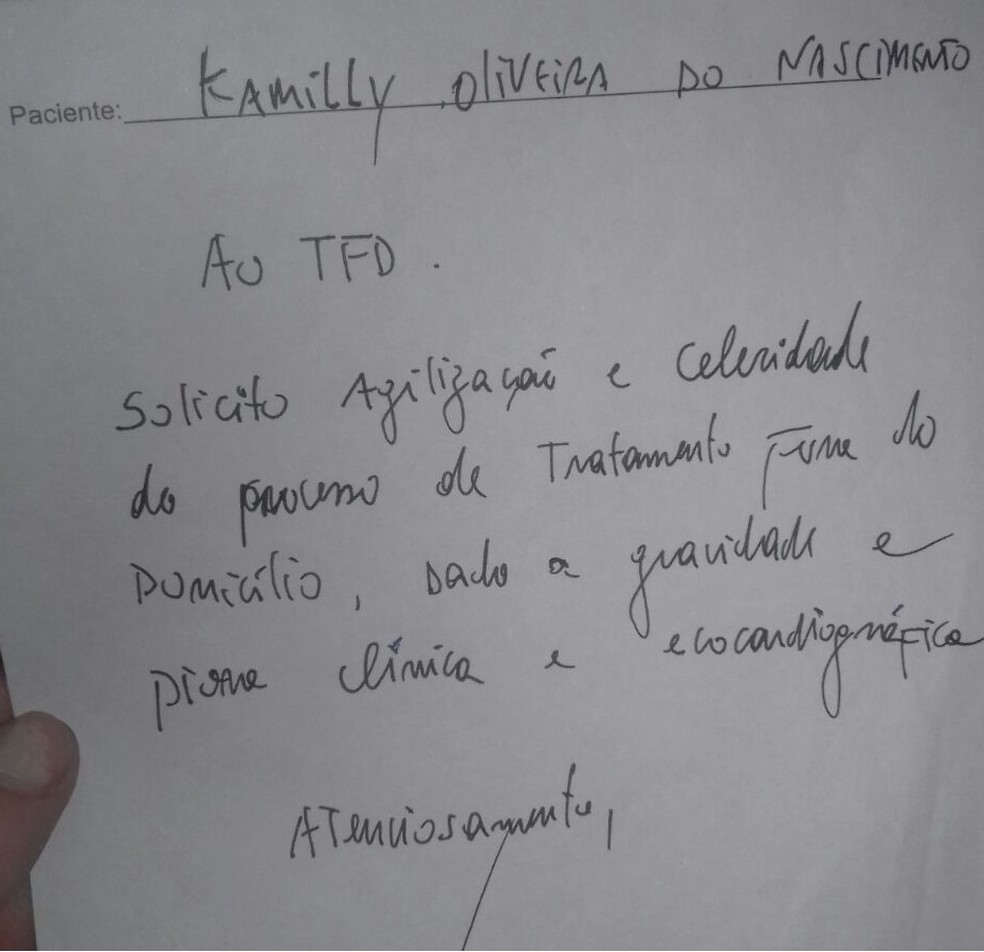 Paciente: KAMILLY OLIVEIRA DO NASCIMENTO
Ao TFD.
Solicito Agilização e celeridade
do processo de Tratamento Fora do
Domicílio, dado a gravidade e
piora clínica e ecocardiográfica
Atenciosamente,